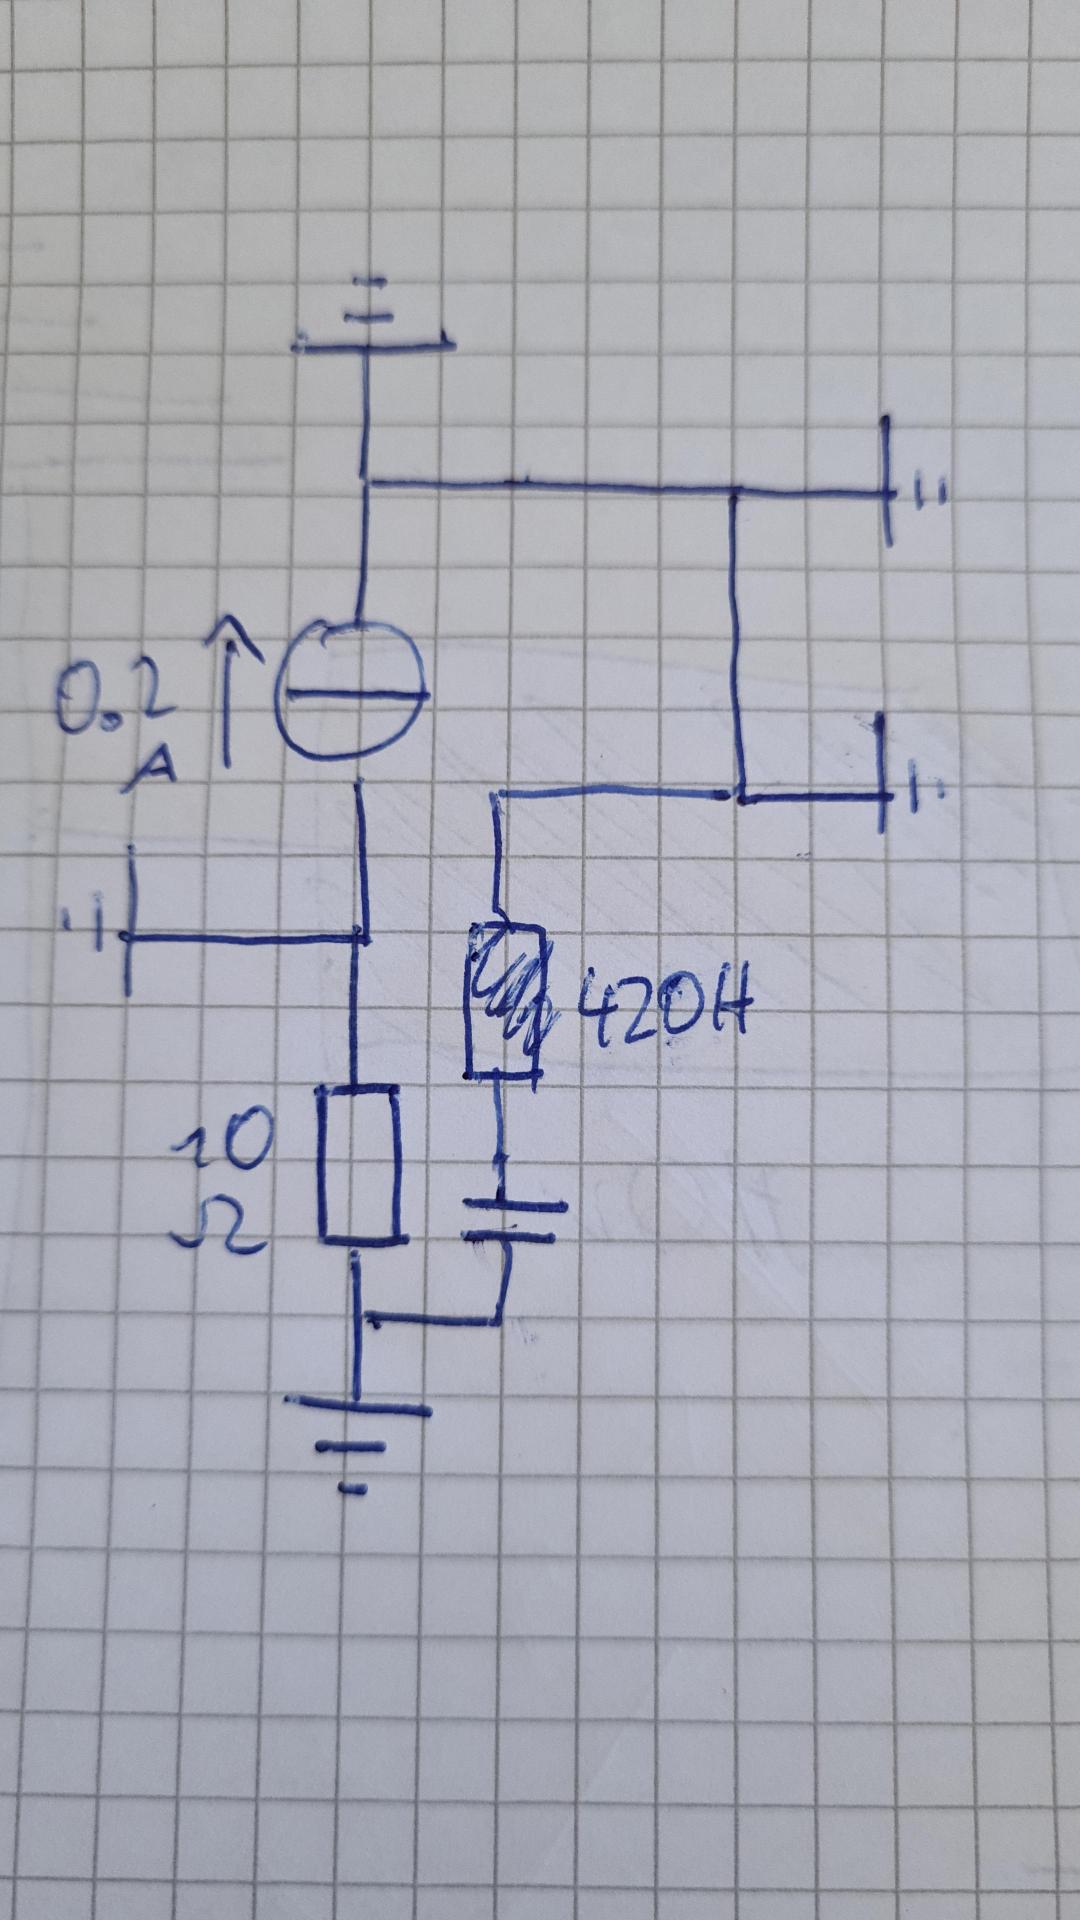 0.2
A
420H
10
Ω